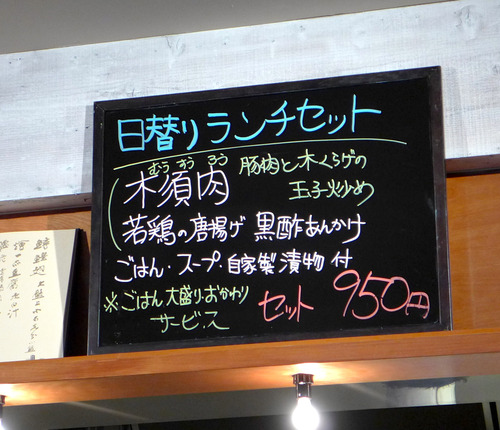 日替りランチセット
むうすうろう
木須肉 豚肉と木くらげの
玉子炒め
若鶏の唐揚げ 黒酢あんかけ
ごはん・スープ・自家製漬物付
※ごはん大盛り・おかわり
サービス
セット 950円